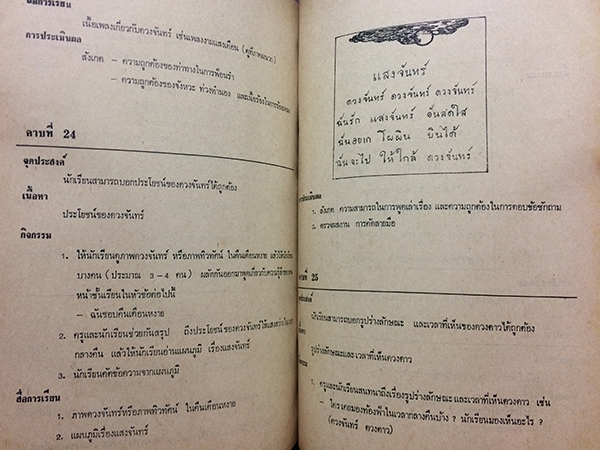 สื่อการเรียน
เนื้อเพลงเกี่ยวกับดวงจันทร์ เช่นเพลงงามแสงเดือน (ดูที่ภาคผนวก)
การประเมินผล
สังเกต – ความถูกต้องของท่าทางในการฟ้อนรำ
– ความถูกต้องของจังหวะ ท่วงทำนอง และเนื้อร้องในการร้องเพลง
คาบที่ 24
จุดประสงค์
นักเรียนสามารถบอกประโยชน์ของดวงจันทร์ได้ถูกต้อง
เนื้อหา
ประโยชน์ของดวงจันทร์
กิจกรรม
1. ให้นักเรียนดูภาพดวงจันทร์ หรือภาพทิวทัศน์ ในคืนเดือนหงาย
บางคน (ประมาณ 3 – 4 คน) ผลัดกันออกมาพูดเกี่ยวกับความรู้สึก
หน้าชั้นเรียนในหัวข้อต่อไปนี้
– ฉันชอบคืนเดือนหงาย
2. ครูและนักเรียนช่วยกันสรุป ถึงประโยชน์ของดวงจันทร์ให้แสงสว่าง
กลางคืน แล้วให้นักเรียนอ่านแผนภูมิ เรื่องแสงจันทร์
3. นักเรียนคัดข้อความจากแผนภูมิ
สื่อการเรียน
1. ภาพดวงจันทร์หรือภาพทิวทัศน์ ในคืนเดือนหงาย
2. แผนภูมิเรื่องแสงจันทร์
แสงจันทร์
ดวงจันทร์ ดวงจันทร์ ดวงจันทร์
ฉันรัก แสงจันทร์ อันสดใส
ฉันอยาก โผผิน บินได้
ฉันจะไป ให้ใกล้ ดวงจันทร์
1. สังเกต ความสามารถในการพูดเล่าเรื่อง และความถูกต้องในการตอบข้อซักถาม
2. ตรวจผลงาน การคัดลายมือ
คาบที่ 25
นักเรียนสามารถบอกรูปร่างลักษณะ และเวลาที่เห็นของดวงดาวได้ถูกต้อง
รูปร่างลักษณะและเวลาที่เห็นดวงดาว
1. ครูและนักเรียนสนทนาถึงเรื่องรูปร่างลักษณะและเวลาที่เห็นดวงดาว เช่น
– ใครเคยมองท้องฟ้าในเวลากลางคืนบ้าง ? นักเรียนมองเห็นอะไร ?
(ดวงจันทร์ ดวงดาว)